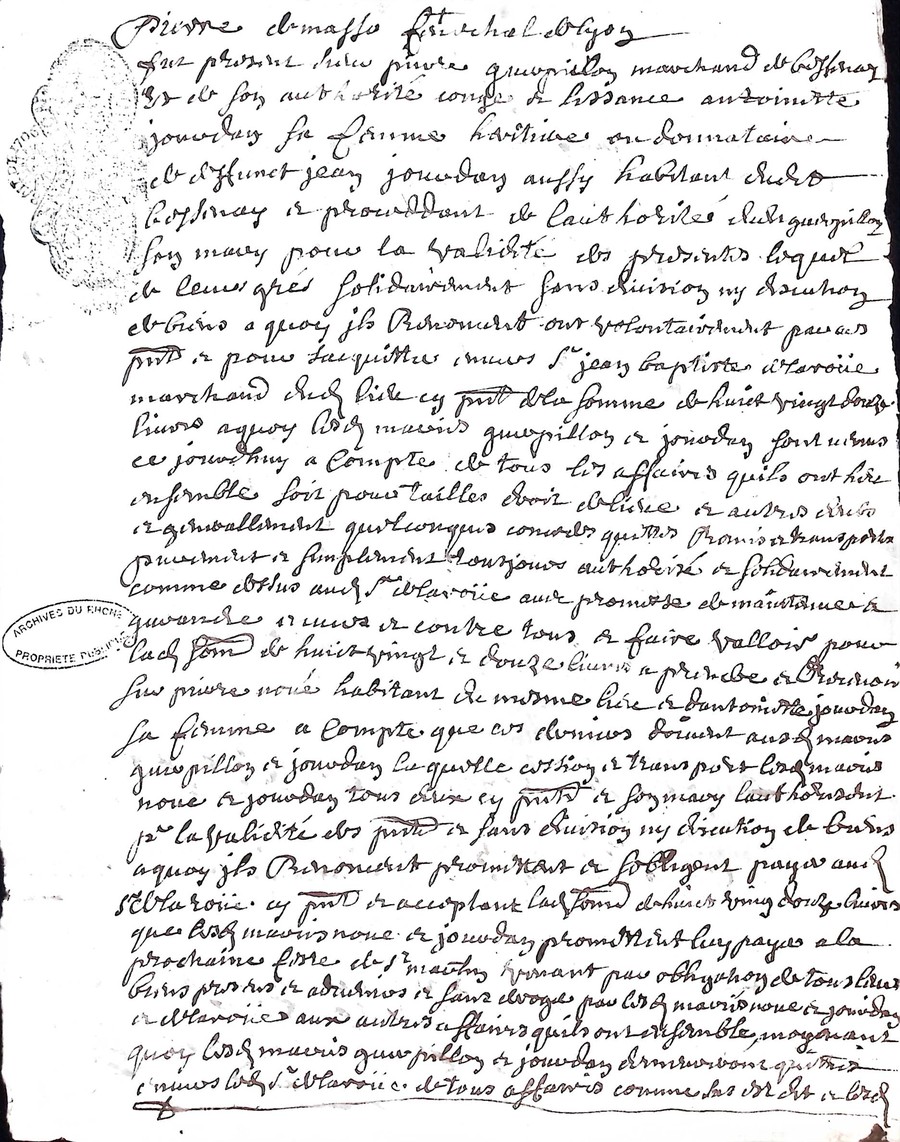 Pierre de masso senechal de lyon
fut present sieur pierre guerpillon marchand de bessenay
et de son authorité conge et lissance antoinette
jourdan sa femme heritiere ou donnataire
de deffunct jean jourdan aussy habitant dudit
bessenay et proceddant de lauthorité dudit guerpillon
son mary pour la validité des presentes lequel
de leurs grés solidairement sans division ny discution
de biens a quoy ils Renoncent ont volontairement par ces
pntes et pour sacquitter envers Sr jean baptiste delaroüe
marchand dud lieu cy pnt de la somme de huict vingt douze
livres a quoy lesd mariés guerpillon et jourdan sont venus
ce jourdhuy a Compte de tous les affaires quils ont heu
ensemble soit pour tailles droit de liene et autres
et generallement quelconques concedes quittes Remis et transporte
purement et simplement toutjours authorité et solidairement
comme dessus aud Sr delaroüe avec promesse de maintenir et
guarandir envers et contre tous et faire valloir pour
lad some de huict vingt et douze livres a prendre et Recevoir
sur pierre noué habitant du mesme lieu et dantoinette jourdan
sa femme a Compte que ces derniers doivent ausd mariés
guerpillon et jourdan laquelle cession et transport lesd mariés
noue et jourdan tous deux cy pnts et son mary lauthorisant
pr la validité des pntes et sans division ny discution de biens
a quoy ils Renoncent promettent et sobligent payer aud
Sr delaroüe cy pnt et acceptant lad some de huict vingt douze livres
que lesd mariés noue et jourdan promettent luy payer a la
prochaine feste de St martin venant par obligation de tous leurs
biens presens et advenir et sans deroge par lesd mariés noue et jourdan
et delaroüe aux autres affaires quils ont ensemble, moyenant
quoy lesd mariés guerpillon et jourdan demeureront quittes
envers led Sr delaroüe de tous affaires comme sus est dit et lesd
ARCHIVES DU RHONE
PROPRIETE PUBLIQUE